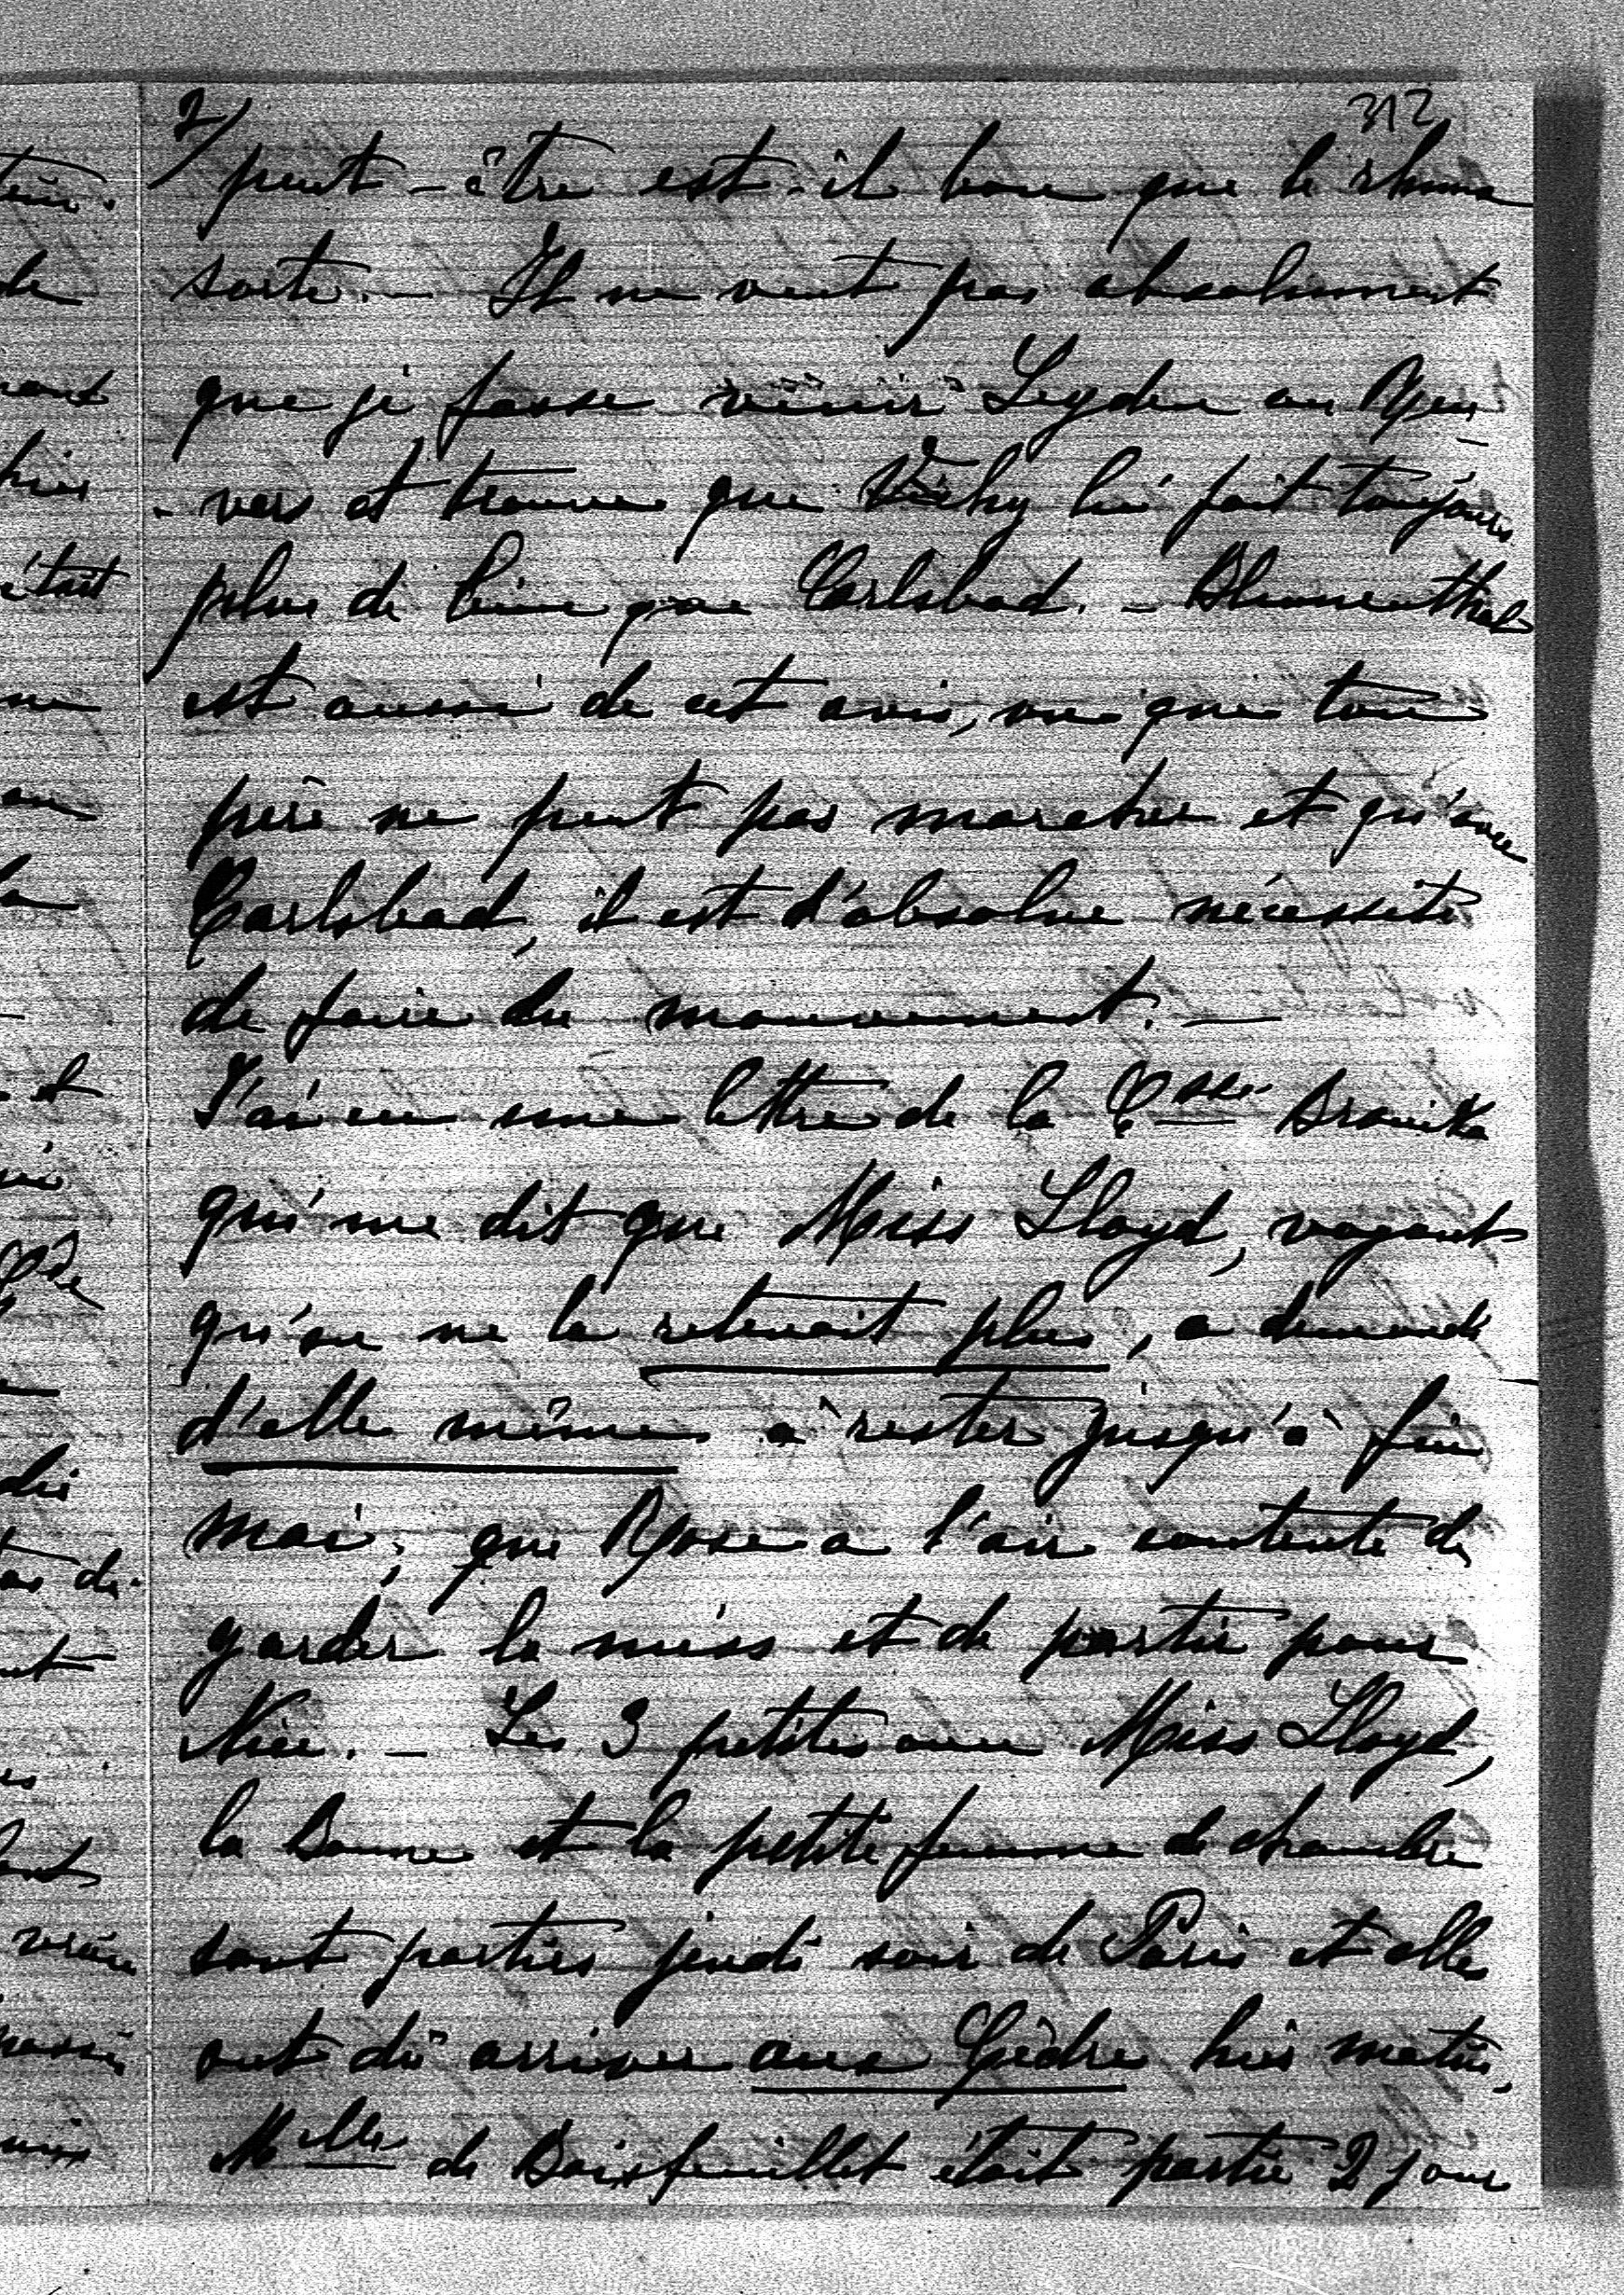 2/ 312
peut-être est-il bon que le rhume
sorte. — Il ne veut pas absolument
que je fasse venir Leyden en
- vers et trouve que Vichy lui fait toujours
plus de bien que Carlsbad. — Blumenthal
est aussi de cet avis, vu que ton
père ne peut pas marcher et qu'avec
Carlsbad, il est d'absolue nécessité
de faire du mouvement. —
J'ai eu une lettre de la Csse
qui me dit que Miss Lloyd, voyant
qu'on ne la retenait plus, a demandé
d'elle même à rester jusqu'à fin
mai; que Rose a l'air contente de
garder la miss et de partir pour
Nice. — Les 3 petites avec Miss Lloyd,
la Bonne et la petite femme de chambre
sont parties jeudi soir de Paris et elles
ont dû arriver aux Cèdre hier matin.
Melle de Boisfeuillet était partie 2 jours